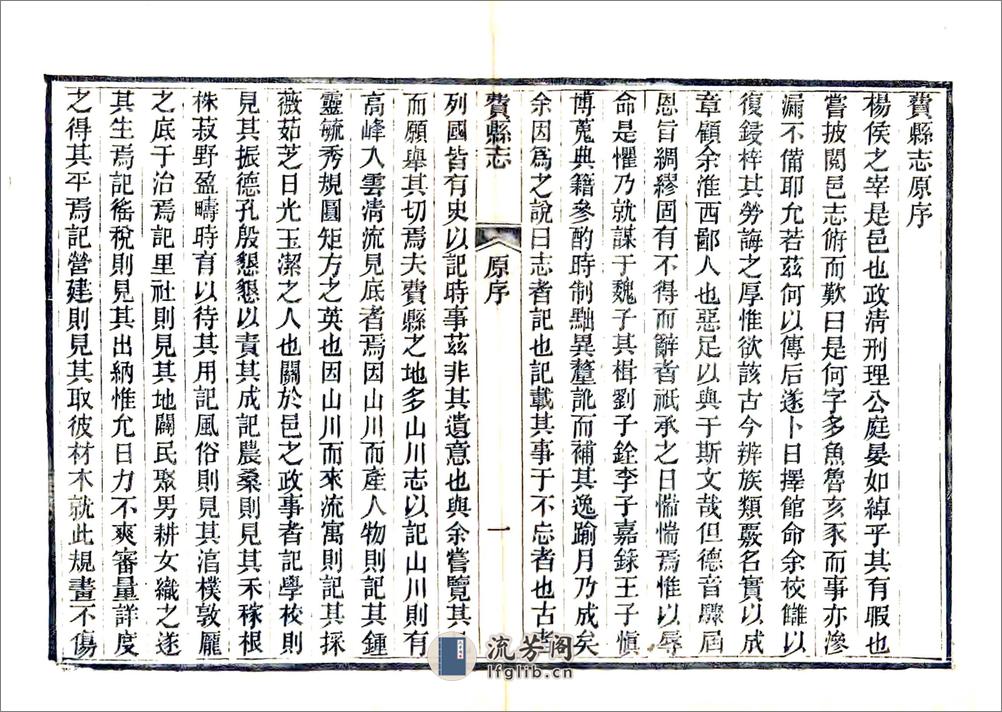 費縣志原序
楊侯之宰是邑也政清刑理公庭晏如綽乎其有暇也
嘗披閱邑志俯而歎曰是何字多魚魯亥豕而事亦滲
漏不備耶允若茲何以傳后遂卜日擇館命余校讎以
復鋟梓其勞誨之厚惟欲該古今辨族類覈名實以成
章顧余淮西鄙人也惡足以與于斯文哉但德音驟屆
恩旨綢繆固有不得而辭者祇承之日惴惴焉惟以辱
命是懼乃就謀于魏子其楫劉子銓李子嘉錄王子愼
博蒐典籍參酌時制黜異釐訛而補其逸踰月乃成矣
余因爲之說曰志者記也記載其事于不忘者也古者
費縣志
原序
一
列國皆有史以記時事茲非其遺意也與余嘗覽其
而願舉其切焉夫費縣之地多山川志以記山川則有
高峰入雲清流見底者焉因山川而產人物則記其鍾
靈毓秀規圓矩方之英也因山川而來流寓則記其採
薇茹芝日光玉潔之人也關於邑之政事者記學校則
見其振德孔殷懇懇以責其成記農桑則見其禾稼根
株菽野盈疇時育以待其用記風俗則見其湻樸敦龐
之底于治焉記里社則見其地闢民聚男耕女織之遂
其生焉記徭稅則見其出納惟允日力不爽審量詳度
之得其平焉記營建則見其取彼材木就此規畫不傷
流芳阁
lfglib.cn